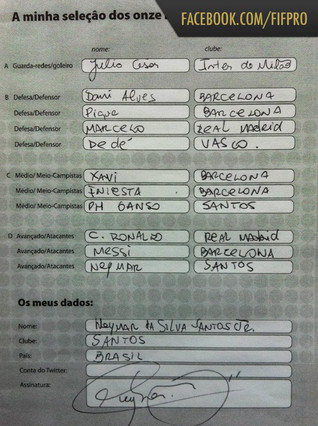 FACEBOOK.COM/FIFPRO
A minha seleção dos onze
nome: clube:
A Guarda-redes/goleiro Julio Cesar Inter de Milão
B Defesa/Defensor Dani Alves BARCELONA
Defesa/Defensor Pique BARCELONA
Defesa/Defensor MARCELO REAL MADRID
Defesa/Defensor DEDÉ VASCO.
C Médio/ Meio-Campistas XAVI BARCELONA
Médio/ Meio-Campistas INIESTA BARCELONA
Médio/ Meio-Campistas PH GANSO SANTOS
D Avançado/Atacantes C. RONALDO REAL MADRID
Avançado/Atacantes MESSI BARCELONA
Avançado/Atacantes NEYMAR SANTOS
Os meus dados:
Nome: NEYMAR DA SILVA SANTOS JR.
Clube: SANTOS
País: BRASIL
Conta do Twitter:
Assinatura: Neymar